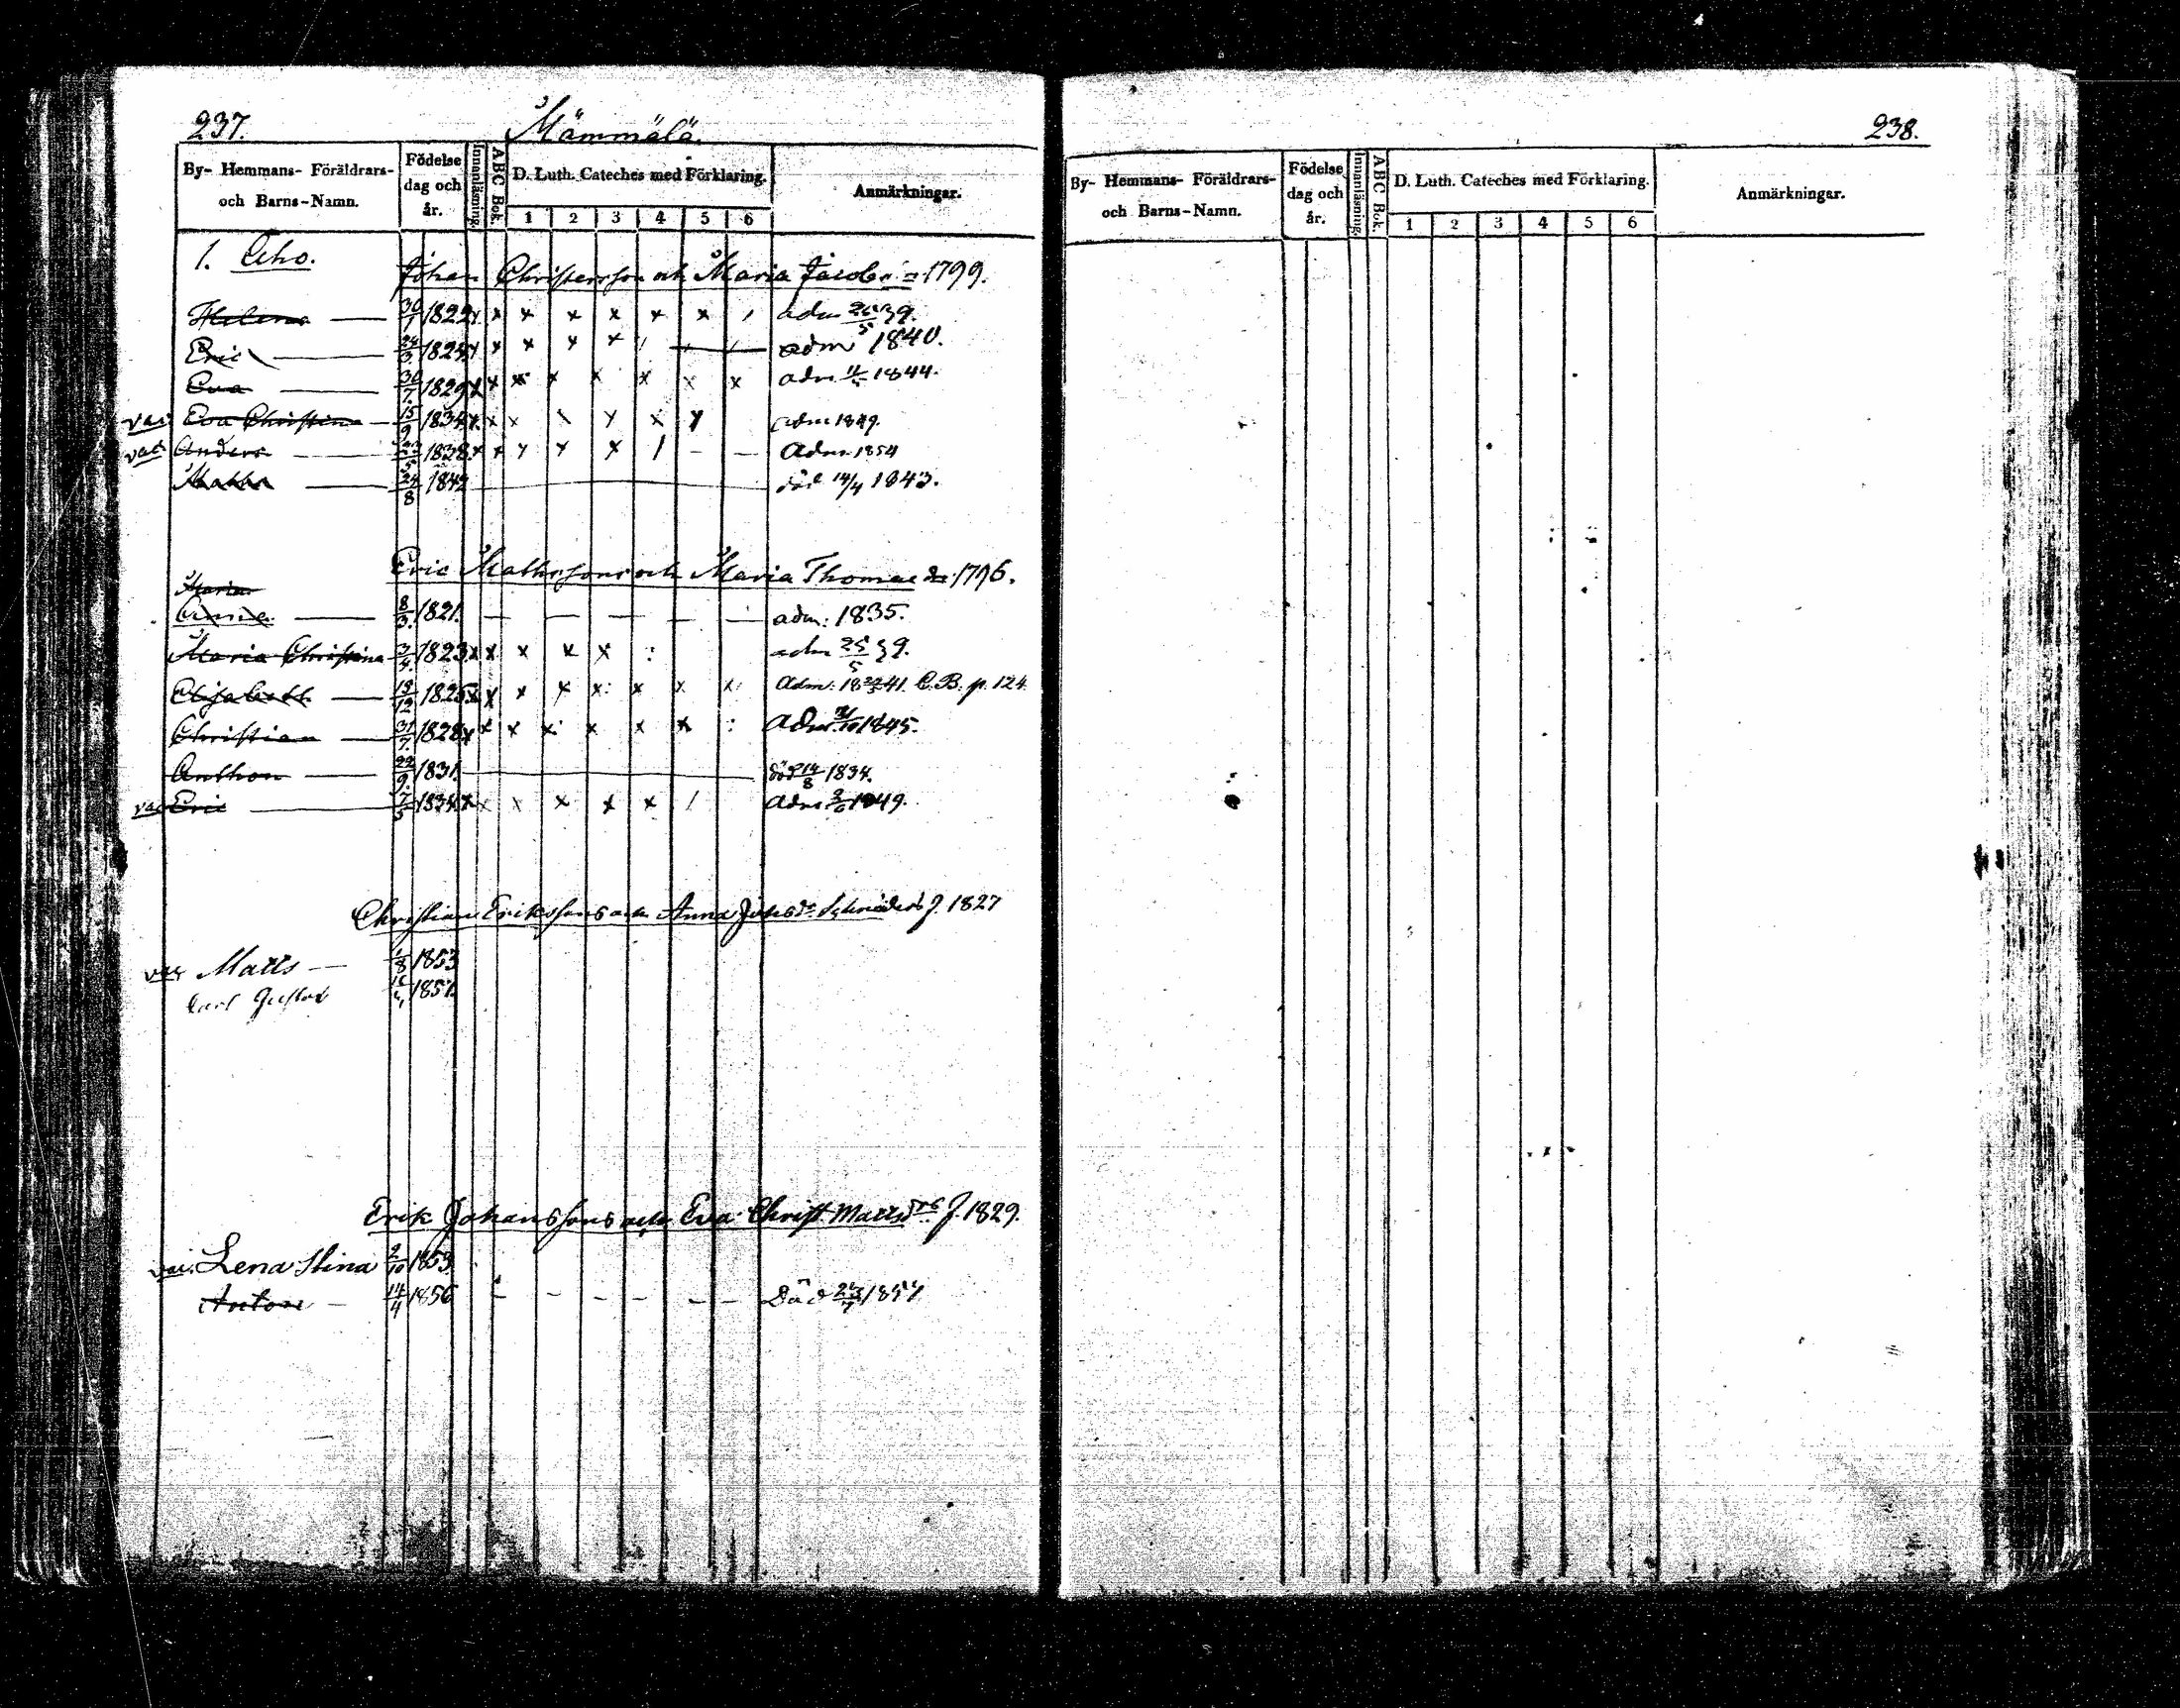 237.
Mämmälä.
By- Hemmans- Föräldrars- och Barns-Namn.
Födelse dag och år.
Innanläsning.
ABC Bok.
D. Luth. Cateches med Förklaring.
1 2 3 4 5 6
Anmärkningar.
1. Aho.
Johan Christersson och Maria Jacobs 1799.
Helena 30/1 1822 x x x x x x x / adm 39.
Eric 24/3 adm 1840.
Eva 30/7 1829 x x x x x x x x adm 1844.
vac Eva Christina 15/9 1834 x x x \ x x x adm 1849.
vac Anders 1838 x x x x x / – – Adm. 1854
24/8 1842 död 14/4 1843.
Eric Mathssons och Maria Thomae dr 1796.
Maria
Anna 8/3 1821. – – – – – – adm: 1835.
Maria Christina 3/4 1823 x x x x x : adm 25/5 39.
Elisabeth 19/12 1825 x x x x x: x x x Adm: 41. C.B. p. 124
Christian 31/7 1828 x x x x x x x : Adm. 1845.
Anthon 22/9 1831. död 14/8 1834.
vac Eric 7/5 1834 x x x x x x / adm 1849.
Christian Erikssons och Anna f. 1827
vac Matts – 1/8 1853
Carl Gustav 1851.
Erik Johanssons och Eva Christ. Mattsdr f. 1829.
vac. Lena Stina 2/10 1853
Anton – 14/4 1856 – – – – – – Död
238.
By- Hemmans- Föräldrars- och Barns-Namn.
Födelse dag och år.
Innanläsning.
ABC Bok.
D. Luth. Cateches med Förklaring.
1 2 3 4 5 6
Anmärkningar.